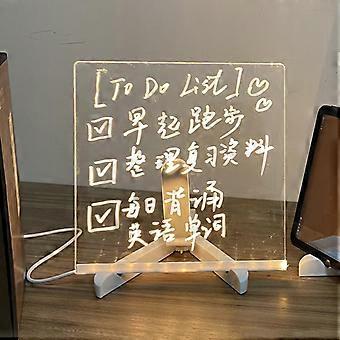 [To Do List]♡♡
☑早起跑步
☑整理复习资料
☑每日背诵
英语单词